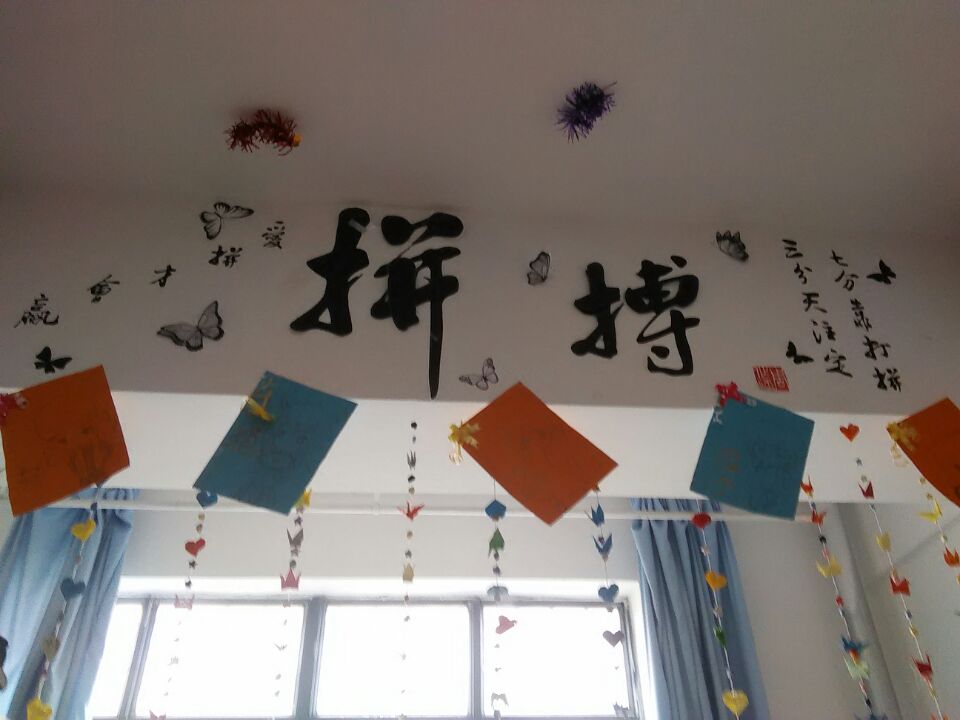 爱拼才會赢
拼搏
三分天注定
七分靠打拼